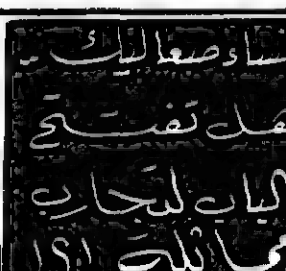 نساء صعاليك ..
هل تفتح
الباب لتجارب
مماثلة ؟!!